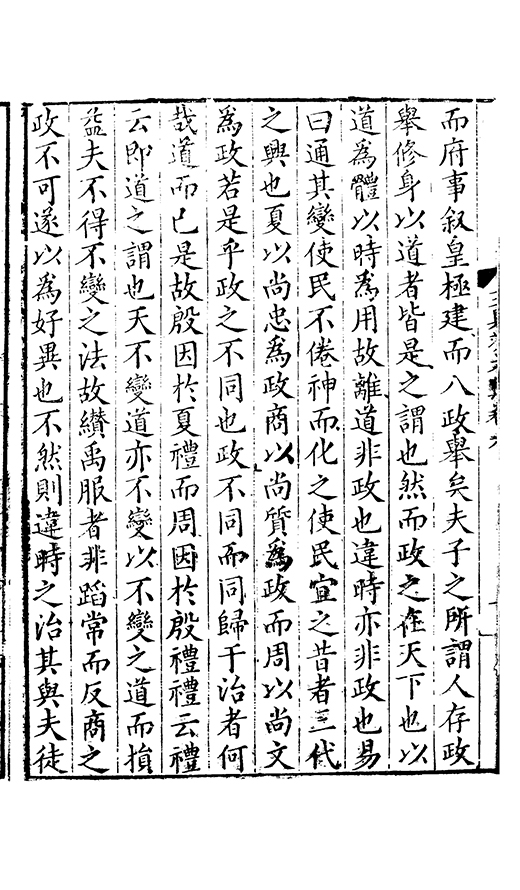 而府事叙皇極建而八政舉矣夫子之所謂人存政
舉修身以道者皆是之謂也然而政之在天下也以
道為體以時為用故離道非政也違時亦非政也易
曰通其變使民不倦神而化之使民宜之昔者三代
之興也夏以尚忠為政商以尚質為政而周以尚文
為政若是乎政之不同也政不同而同歸于治者何
哉道而已是故殷因於夏禮而周因於殷禮禮云禮
云即道之謂也天不變道亦不變以不變之道而損
益夫不得不變之法故纉禹服者非蹈常而反商之
政不可遂以為好異也不然則違時之治其與夫徒